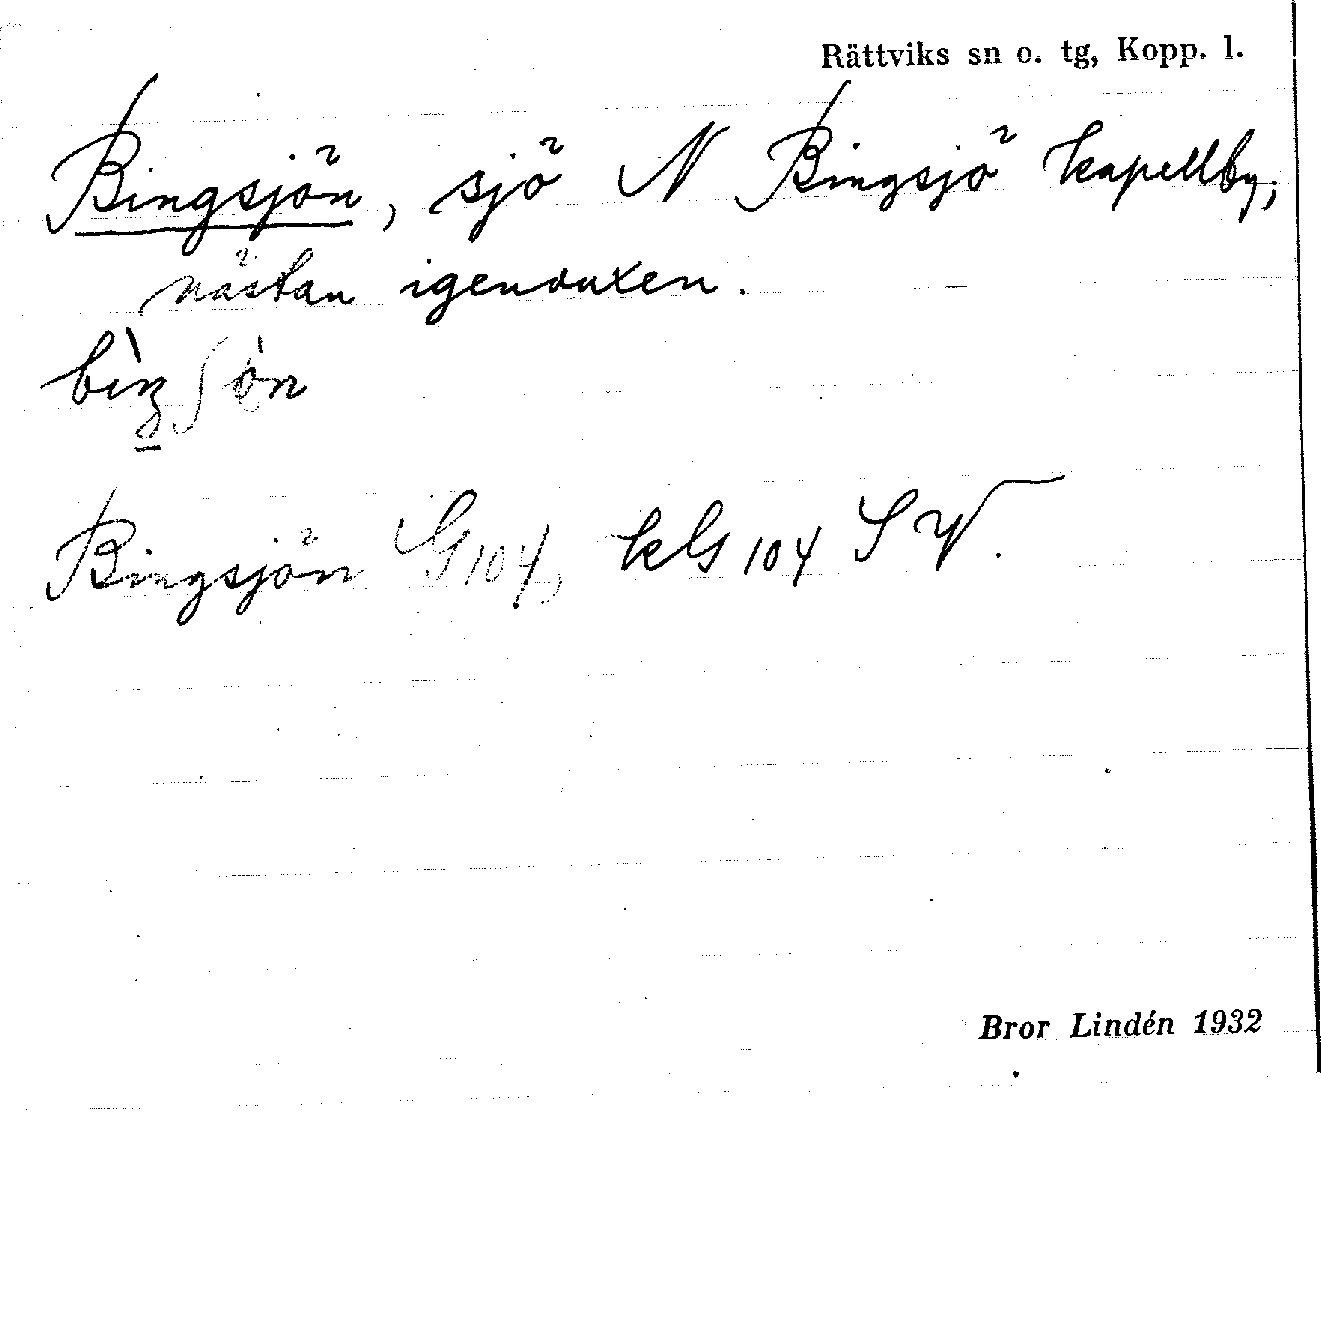 Rättviks sn o. tg, Kopp. l.
Bingsjön, sjö N Bingsjö kapellby,
nästan igenvuxen.
Bingsjön G104, kG104 SV.
Bror Lindén 1932